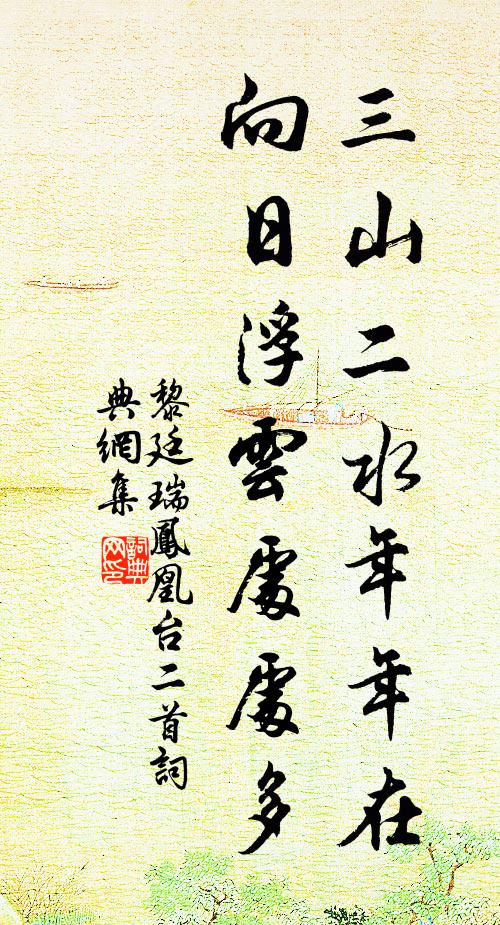 三山二水年年在
向日浮雲處處多
黎廷瑞鳳凰台二首詞
典網集
詞典網印